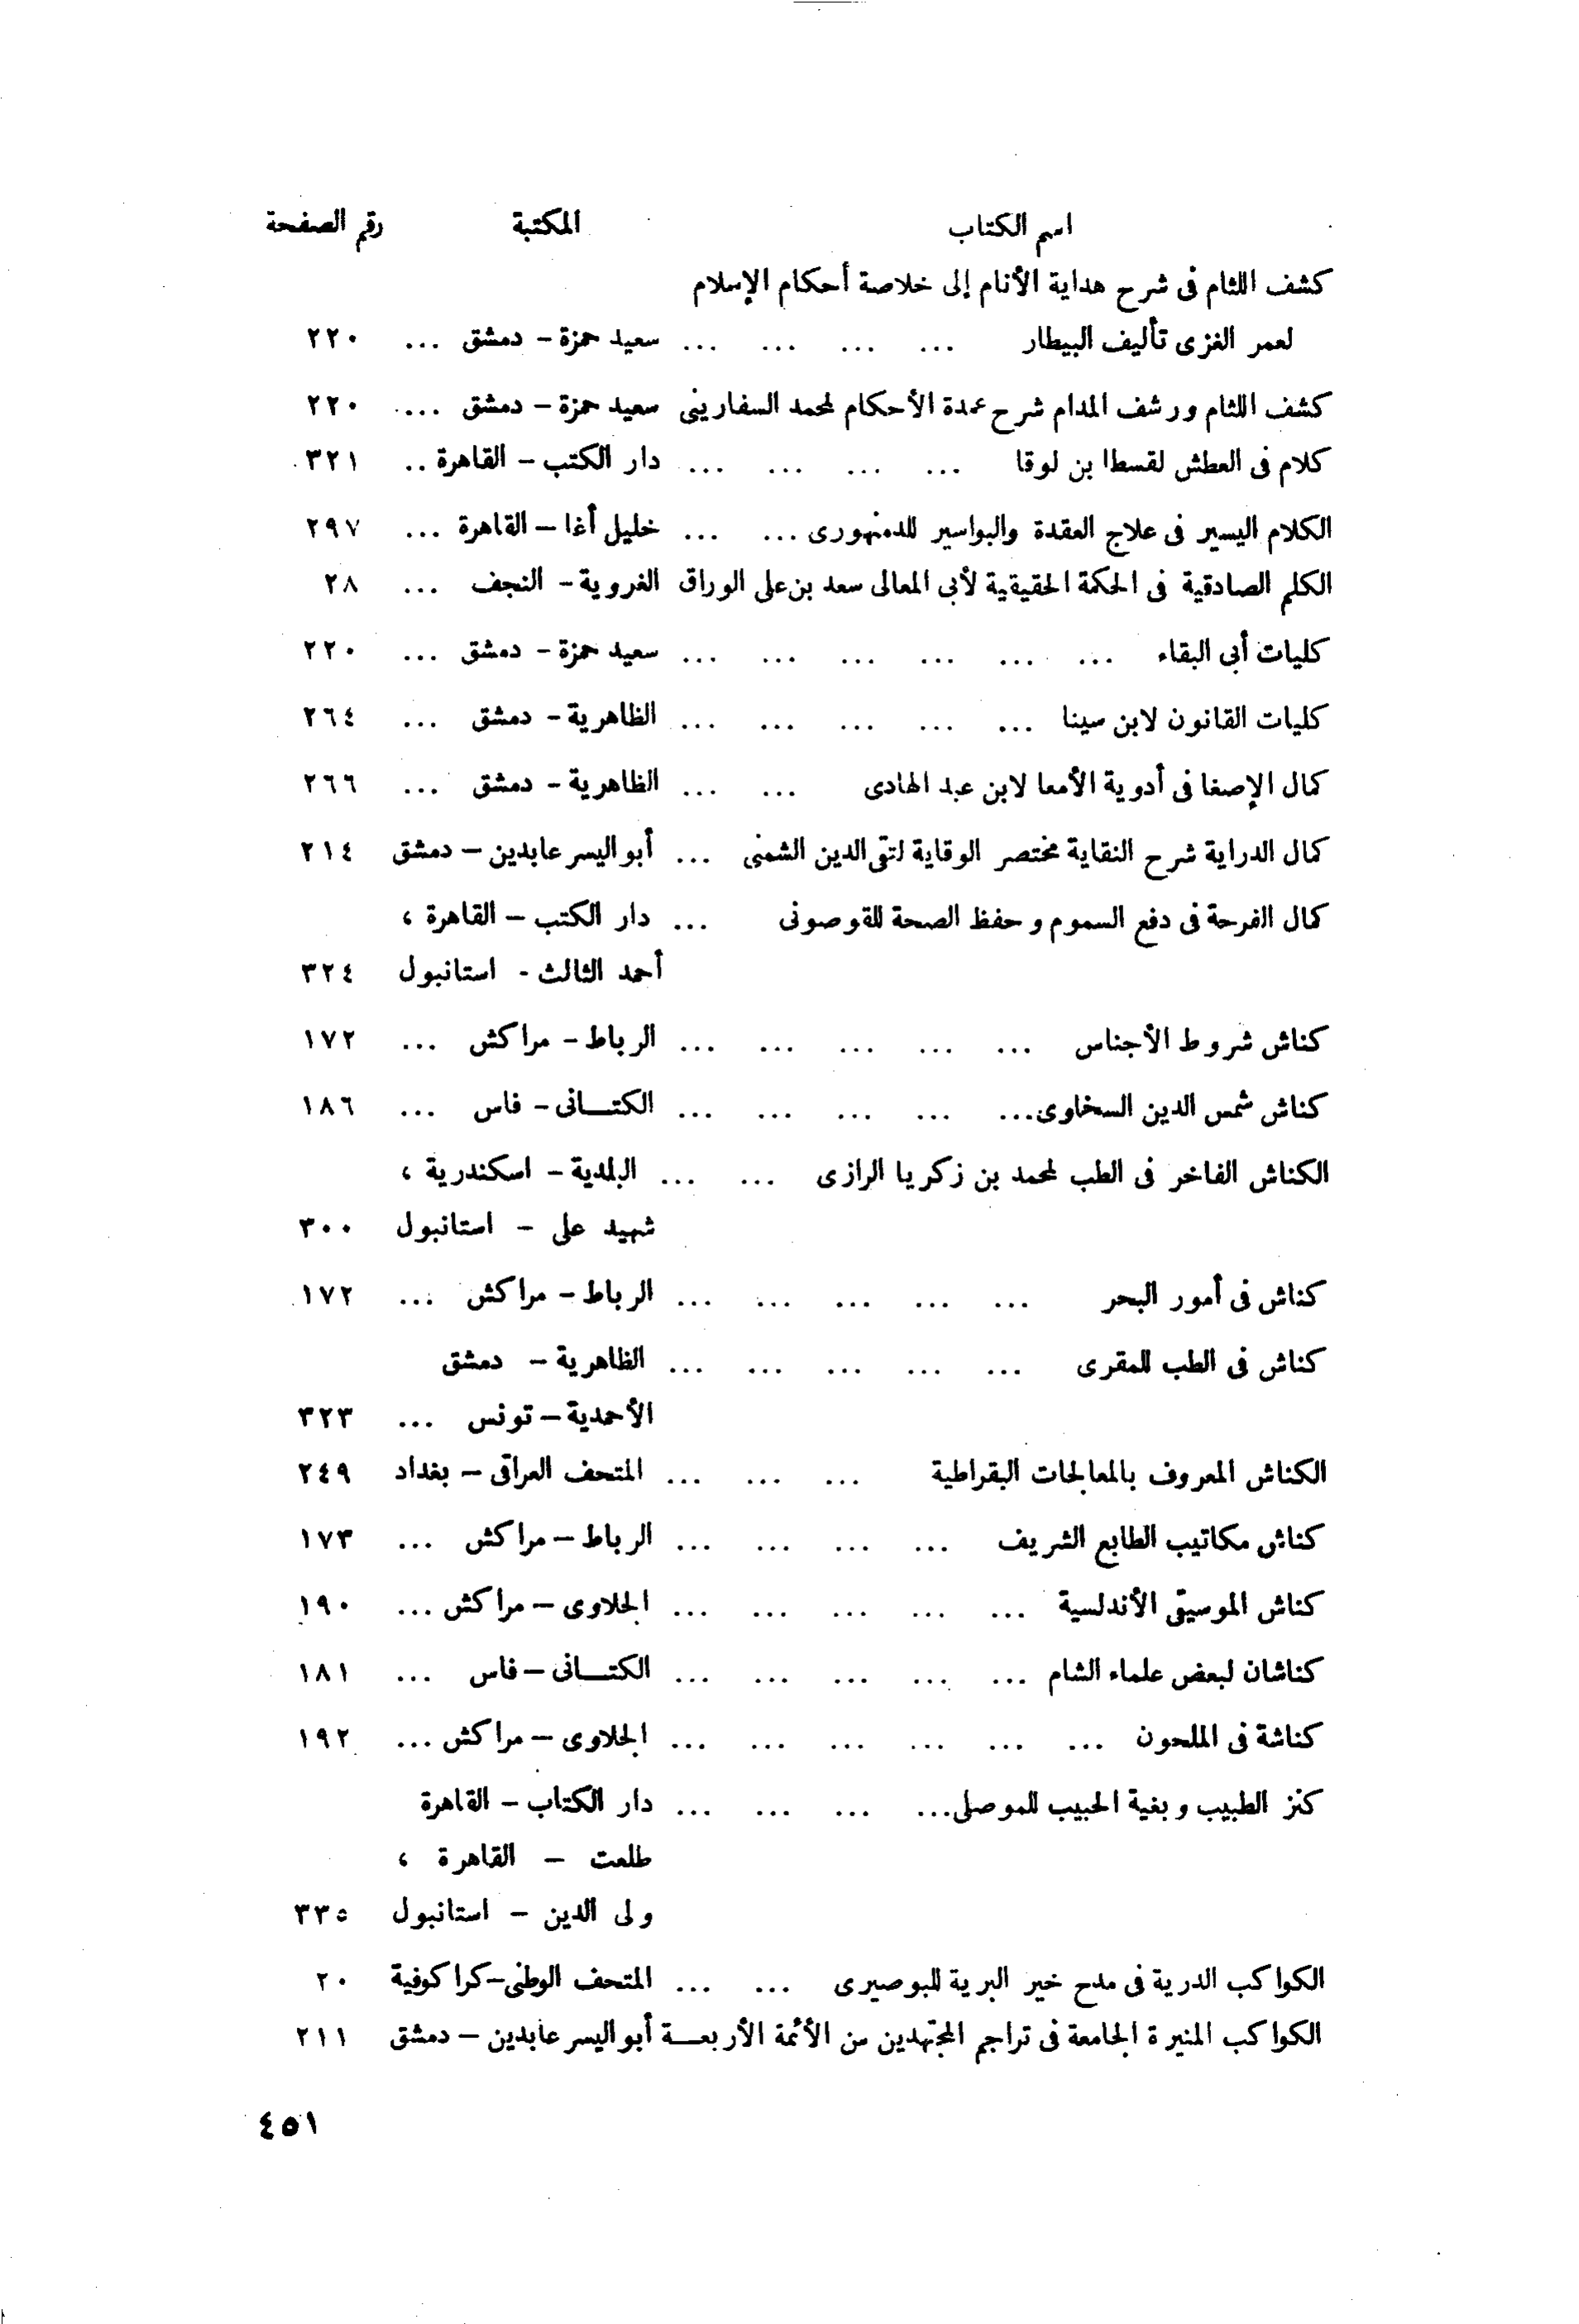 اسم الكتاب المكتبة رقم الصفحة
كشف اللثام فى شرح هداية الأنام إلى خلاصة أحكام الإسلام
لعمر الغزى تأليف البيطار ... ... ... ... سعيد حمزة – دمشق ... ٢٢٠
كشف اللثام ورشف المدام شرح عمدة الأحكام لمحمد السفارينى سعيد حمزة – دمشق ... ٢٢٠
كلام فى العطش لقسطا بن لوقا ... ... ... ... دار الكتب – القاهرة .. ٣٢١
الكلام اليسير فى علاج العقدة والبواسير للدمنهورى ... ... خليل أغا – القاهرة ... ٢٩٧
الكلم الصادقية فى الحكمة الحقيقية لأبى المعالى سعد بن على الوراق الغروية – النجف ... ٢٨
كليات أبى البقاء ... ... ... ... ... ... سعيد حمزة – دمشق ... ٢٢٠
كليات القانون لابن سينا ... ... ... ... ... الظاهرية – دمشق ... ٢٦٤
كمال الإصغا فى أدوية الأمعا لابن عبد الهادى ... ... الظاهرية – دمشق ... ٢٦٦
كمال الدراية شرح النقاية مختصر الوقاية لتقى الدين الشمنى ... أبو اليسر عابدين – دمشق ٢١٤
كمال الفرحة فى دفع السموم وحفظ الصحة للقوصونى ... دار الكتب – القاهرة ،
أحمد الثالث - استانبول ٣٢٤
كناش شروط الأجناس ... ... ... ... ... الرباط – مراكش ... ١٧٢
كناش شمس الدين السخاوى ... ... ... ... ... الكتانى – فاس ... ١٨٦
الكناش الفاخر فى الطب لمحمد بن زكريا الرازى ... ... البلدية – اسكندرية ،
شهيد على – استانبول ٣٠٠
كناش فى أمور البحر ... ... ... ... ... الرباط – مراكش ... ١٧٢
كناش فى الطب للمقرى ... ... ... ... ... الظاهرية – دمشق
الأحمدية – تونس ... ٣٢٣
الكناش المعروف بالمعالجات البقراطية ... ... ... المتحف العراقى – بغداد ٢٤٩
كناش مكاتيب الطابع الشريف ... ... ... ... الرباط – مراكش ... ١٧٣
كناش الموسيقى الأندلسية ... ... ... ... ... الجلاوى – مراكش ... ١٩٠
كناشان لبعض علماء الشام ... ... ... ... ... الكتانى – فاس ... ١٨١
كناشة فى الملحون ... ... ... ... ... ... الجلاوى – مراكش ... ١٩٢
كنز الطبيب وبغية الحبيب للموصلى ... ... ... ... دار الكتاب – القاهرة
طلعت – القاهرة ،
ولى الدين – استانبول ٣٣٥
الكواكب الدرية فى مدح خير البرية للبوصيرى ... ... المتحف الوطنى – كراكوفية ٢٠
الكواكب المنيرة الجامعة فى تراجم المجتهدين من الأئمة الأربعة أبو اليسر عابدين – دمشق ٢١١
٤٥١